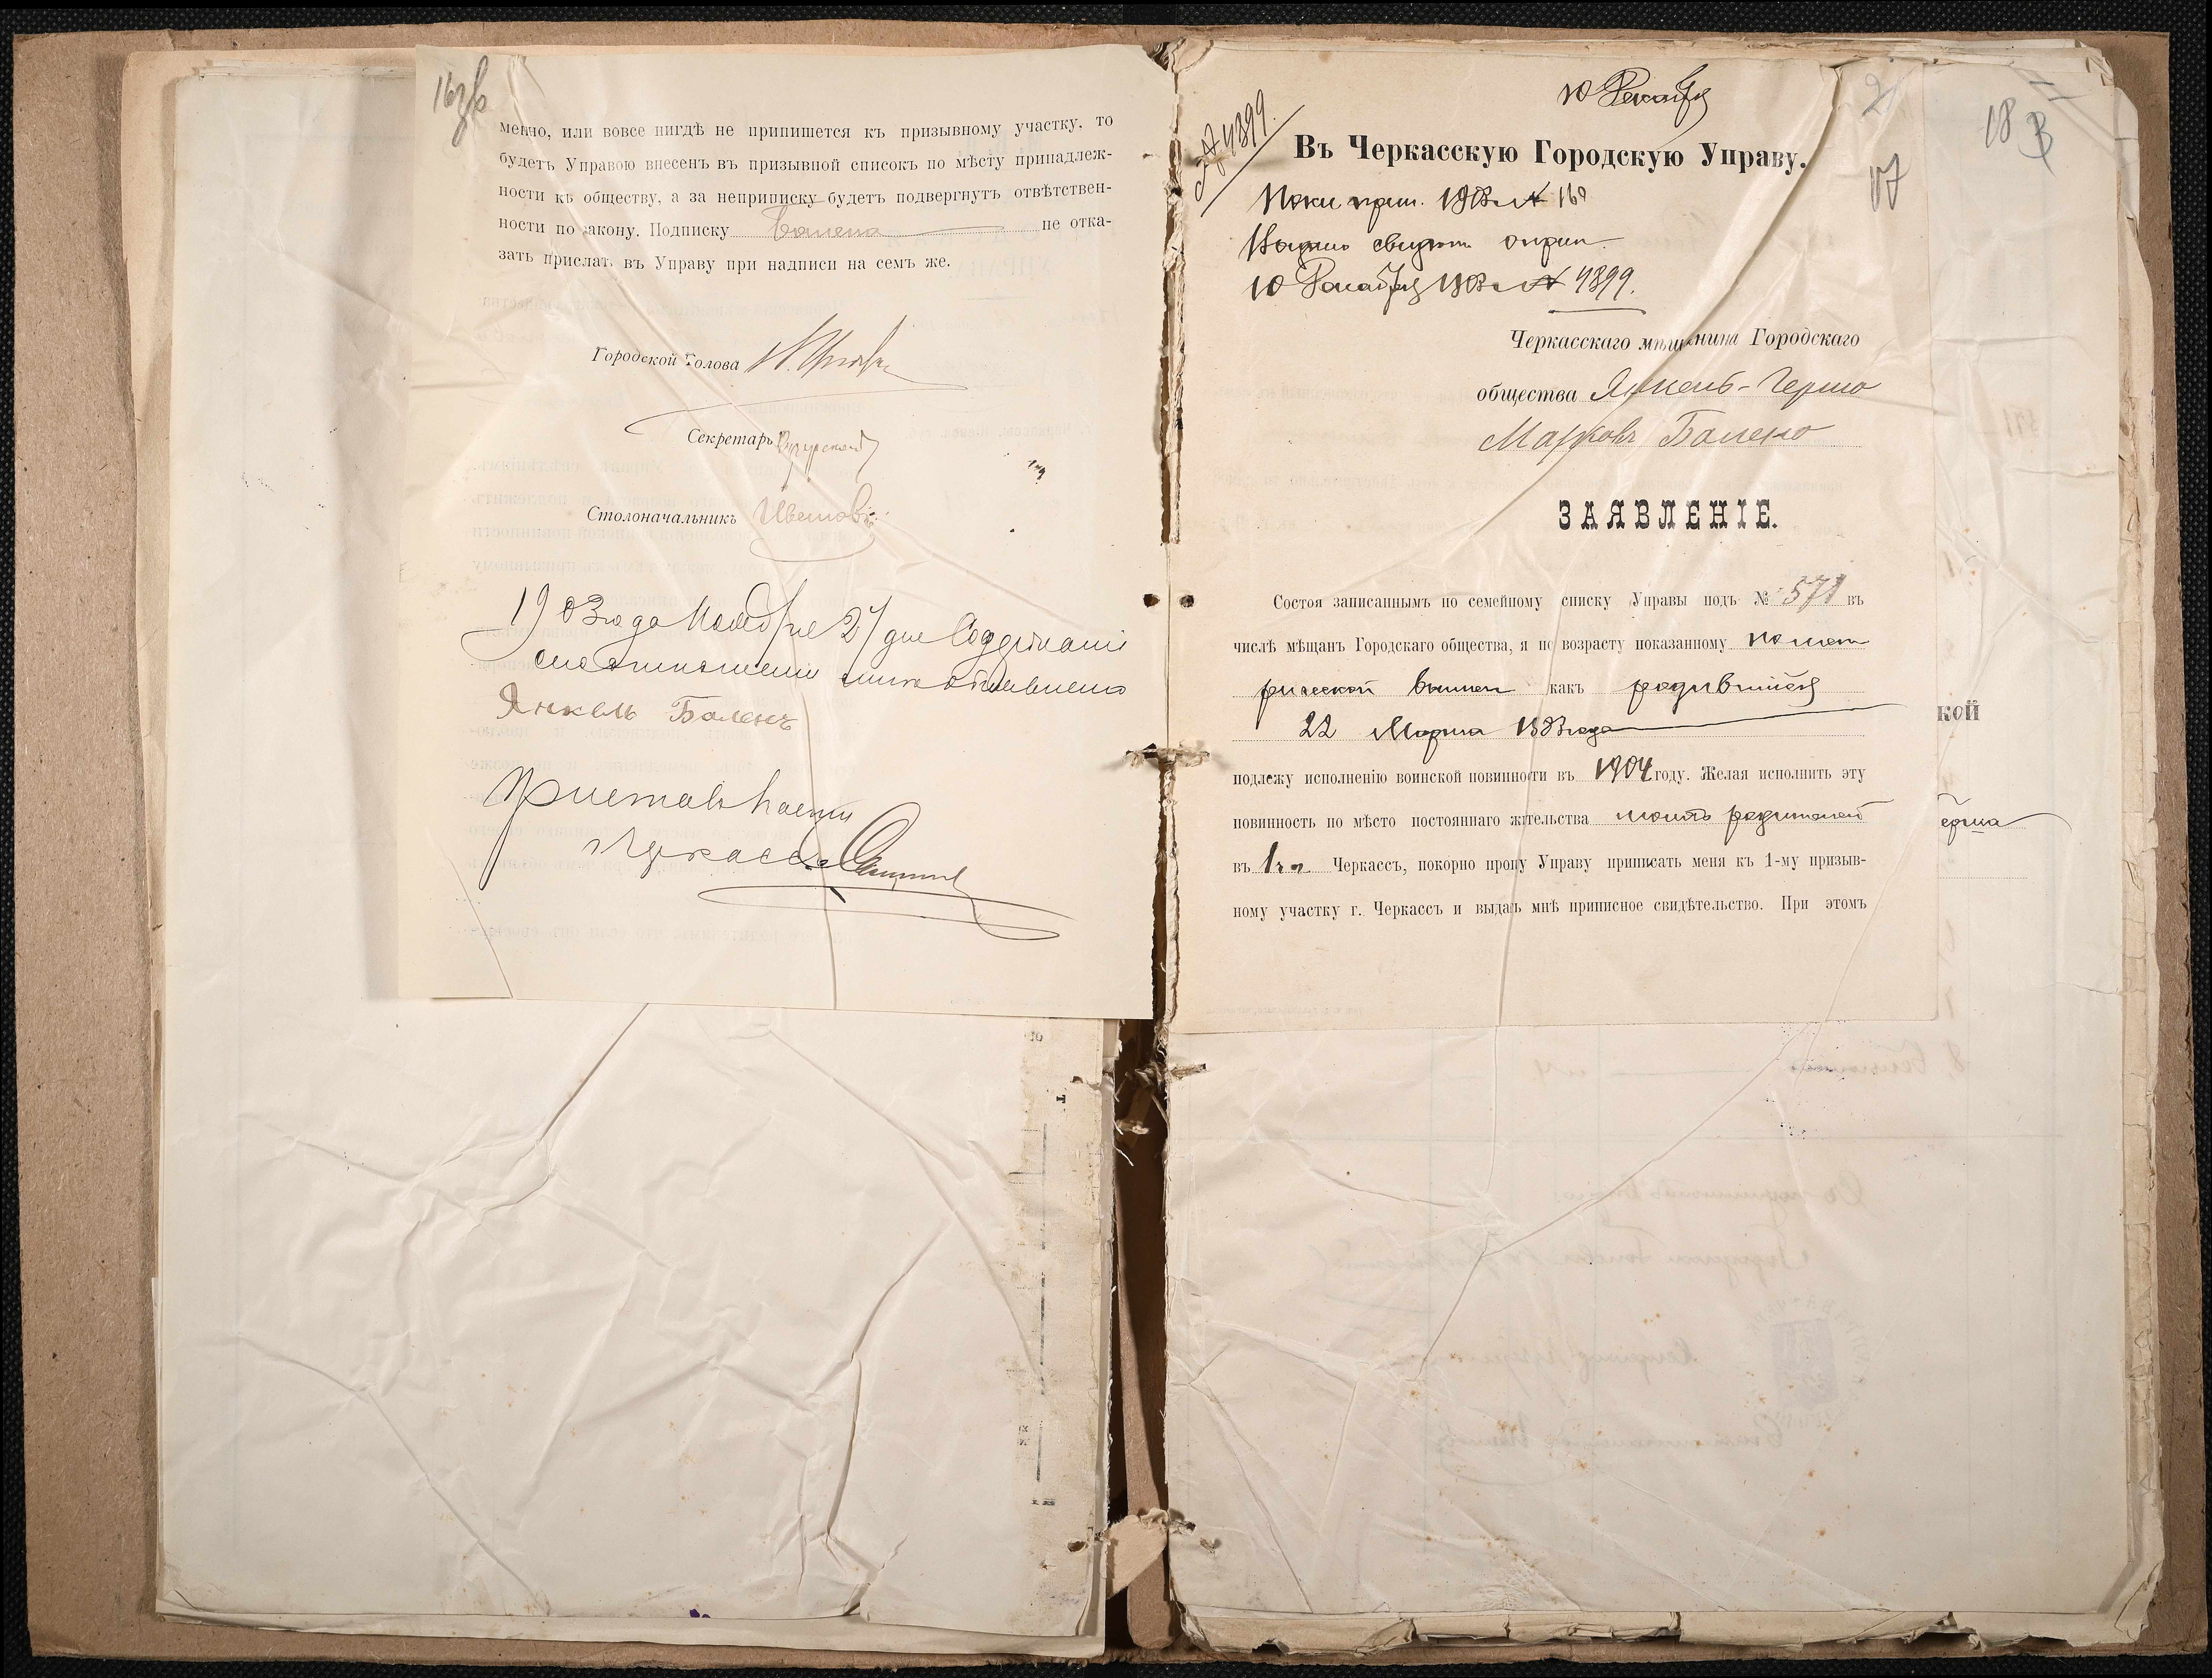 16 зв
менно, или вовсе нигдѣ не припишется къ призывному участку, то
будетъ Управою внесенъ въ призывной списокъ по мѣсту принадлеж-
ности къ обществу, а за неприписку будетъ подвергнутъ отвѣтствен-
ности по закону. Подписку Балена не отка-
зать прислать въ Управу при надписи на семъ же.
Городской Голова
Секретарь
Столоначальникъ
1903 года Ноября 27 дня Содержаніе
сего отношенія мнѣ объявлено
Янкель Баленъ
Приставъ
г. Черкассъ
10 Декабря
№ 4899.
2
17
18
Въ Черкасскую Городскую Управу.
1903 г. № 160
10 Декабря 1903 г. № 4899.
Черкасскаго мѣщанина Городскаго
общества Янкель-Герша
Марковъ Балена
ЗАЯВЛЕНІЕ.
Состоя записаннымъ по семейному списку Управы подъ № 571 въ
числѣ мѣщан Городскаго общества, я по возрасту показанному по мет
рической выписи какъ родившійся
22 Марта 1883 года
подлежу исполненію воинской повинности въ 1904 году. Желая исполнить эту
повинность по мѣсто постояннаго жительства моихъ родителей
въ г. Черкассъ, покорно прошу Управу приписать меня къ 1-му призыв-
ному участку г. Черкассъ и выдать мнѣ приписное свидѣтельство. При этомъ
кой
ерша